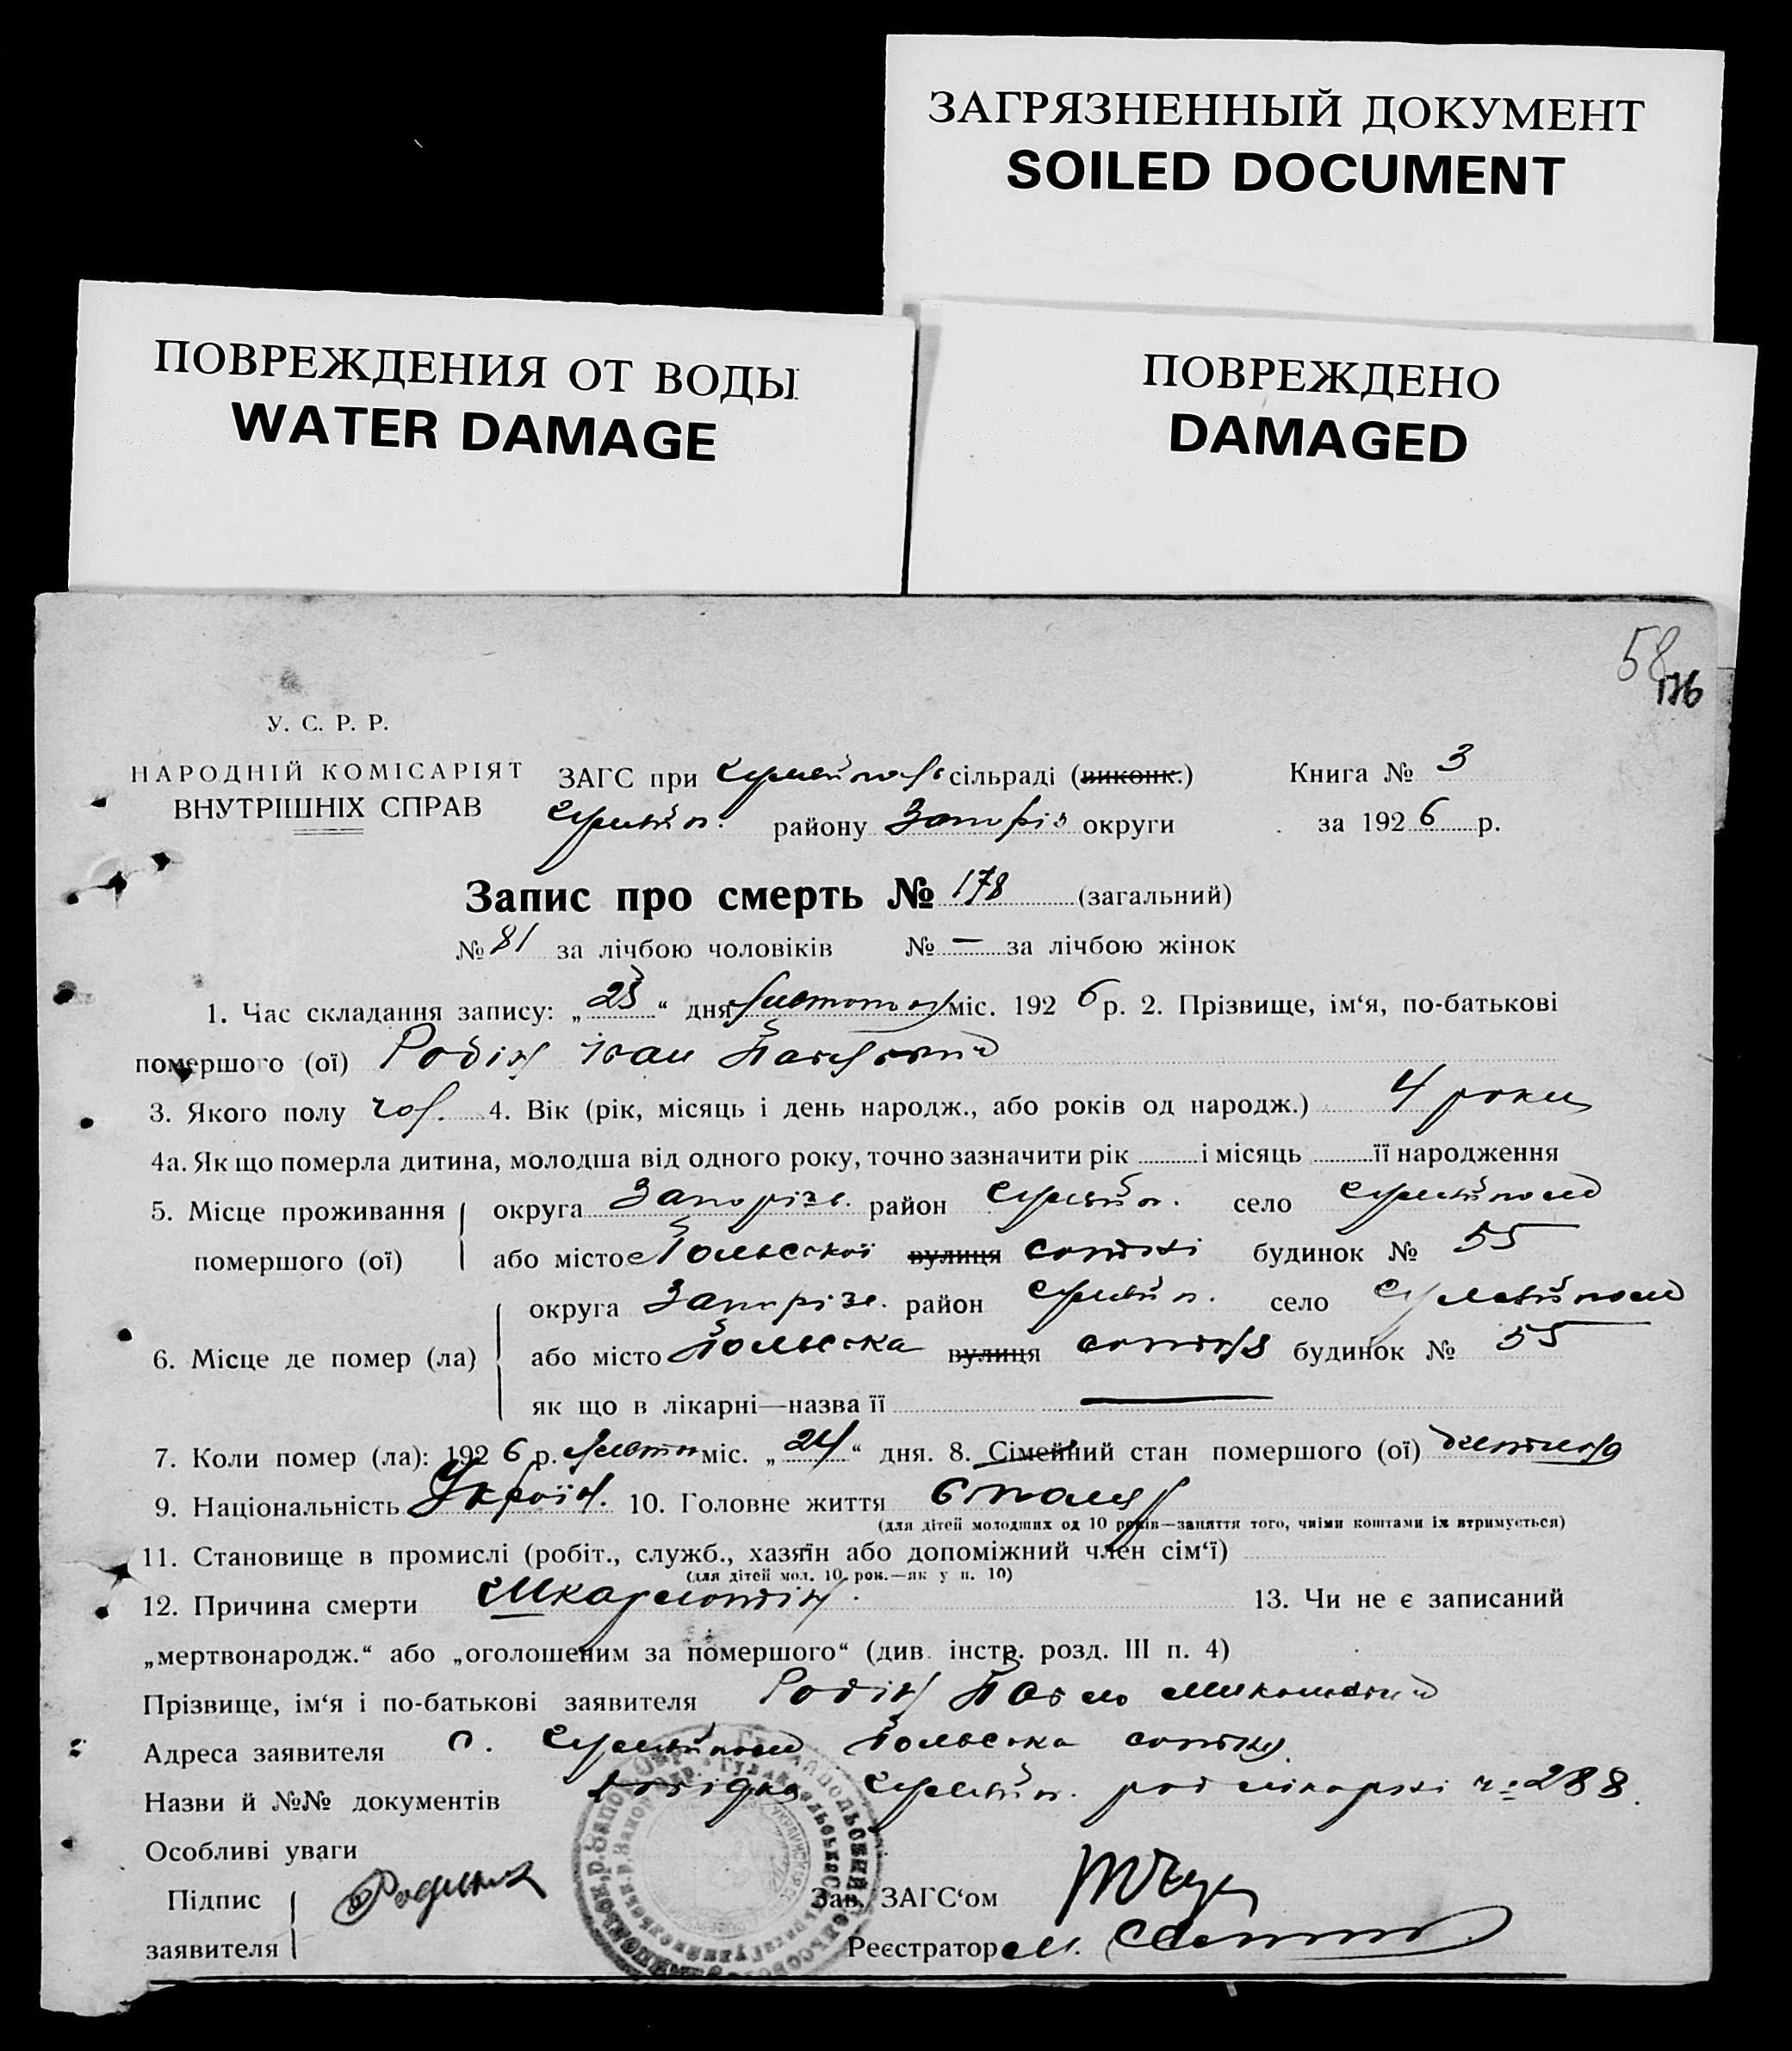 ЗАГРЯЗНЕННЫЙ ДОКУМЕНТ
SOILED DOCUMENT
ПОВРЕЖДЕНИЯ ОТ ВОДЫ
WATER DAMAGE
ПОВРЕЖДЕНО
DAMAGED
58
У. С. Р. Р.
НАРОДНІЙ КОМІСАРІЯТ
ВНУТРІШНІХ СПРАВ
ЗАГС при сільраді (виконк.) Книга № 3
району Запоріз округи за 1926 р.
Запис про смерть № 178 (загальний)
№ 81 за лічбою чоловіків № — за лічбою жінок
1. Час складання запису: „25“ дня листопад міс. 1926 р. 2. Прізвище, ім‘я, по-батькові
помершого (ої) Родін Іван Павлович
3. Якого полу чол. 4. Вік (рік, місяць і день народж., або років од народж.) 4 роки
4а. Як що померла дитина, молодша від одного року, точно зазначити рік і місяць її народження
5. Місце проживання помершого (ої) округа Запорізь. район Гуляйп. село Гуляйполе
або місто Польської вулиця сотні будинок № 55
6. Місце де помер (ла) округа Запорізь. район Гуляйп. село Гуляйполе
або місто Польська вулиця сотня будинок № 55
як що в лікарні—назва її —
7. Коли помер (ла): 1926 р. листоп міс. „24“ дня. 8. Сімейний стан помершого (ої)
9. Національність Україн. 10. Головне життя
(для дітей молодших од 10 років—заняття того, чиїми коштами їх втримується)
11. Становище в промислі (робіт., служб., хазяїн або допоміжний член сім‘ї)
(для дітей мол. 10 рок.—як у п. 10)
12. Причина смерти Шкарлотін. 13. Чи не є записаний
„мертвонародж.“ або „оголошеним за помершого“ (див. інстр. розд. III п. 4)
Прізвище, ім‘я і по-батькові заявителя Родін Павло Миколаєвич
Адреса заявителя с. Гуляйполе Польська сотня
Назви й №№ документів довідка Гуляйп. рай лікарні № 288.
Особливі уваги
Підпис заявителя
Зав. ЗАГС‘ом
Реєстратор